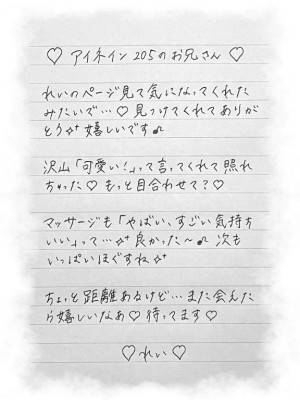 ♡ アイネイン 205のお兄さん ♡
れいのページ見て気になってくれた
みたいで…♡見つけてくれてありが
とう✨嬉しいです♪
沢山「可愛い！」って言ってくれて照れ
ちゃった♡もっと目合わせて？♡
マッサージも「やばい、すごい気持ち
いい」って…✨良かった～♪次も
いっぱいほぐすね✨
ちょっと距離あるけど…また会えた
ら嬉しいなあ♡待ってます♡
♡れい♡